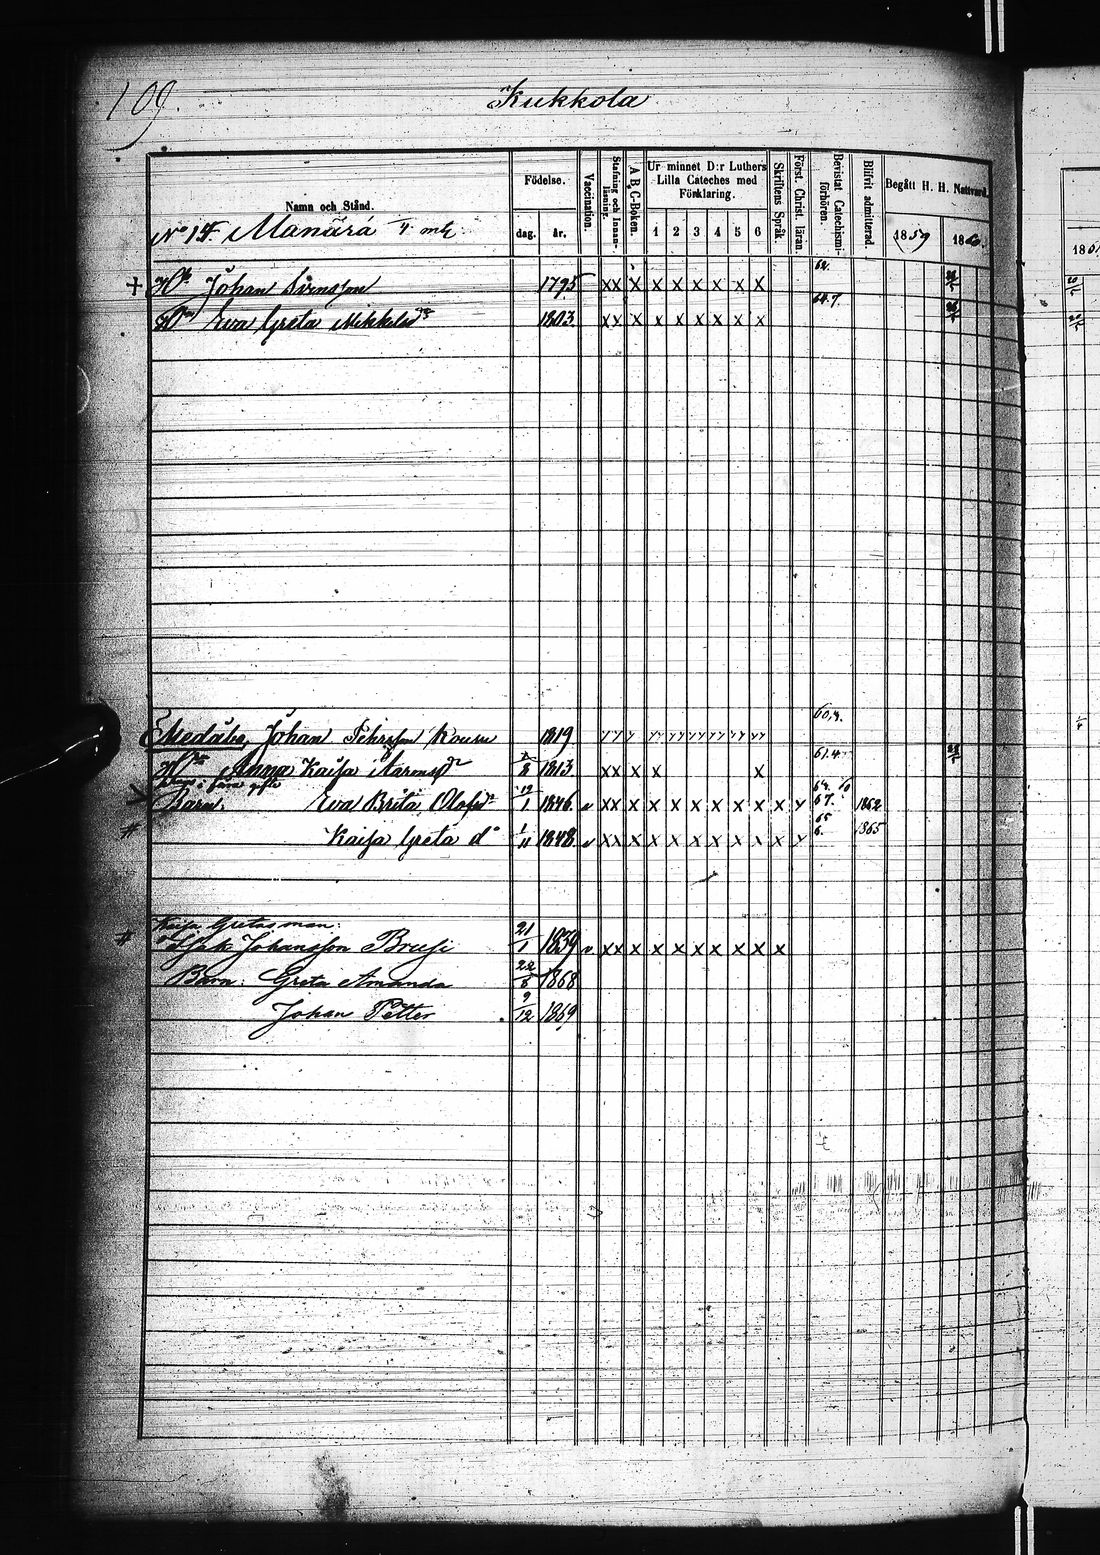 109.
Kukkola
Namn och Stånd.
Födelse.
dag. år.
Vaccination.
Stafning och Innan-läsning.
A B C-Boken.
Ur minnet D:r Luthers Lilla Cateches med Förklaring.
1 2 3 4 5 6
Skriftens Språk.
Först. Christ. läran.
Bevistat Catechismi-förhören.
Blifvit admitterad.
Begått H. H. Nattvard.
1859 1860
No 15. Manärä
+ Johan Svensson 1795 xx x x x x x x x 62.
Eva Greta Mikkelsdr 1803. xx x x x x x x x 64.7.
Johan Pehrsson 1819 60,
Anna Kaisa 1813 xx x x x 61.4
Barn. Eva Brita Olofsd 12/1 1846 v xx x x x x x x x x y 67. 1862
# Kaisa Greta do 1/11 1848 v xx x x x x x x x x y 65 6. 1865
Kaisa Gretas man:
# Isak Johansson Brusi 21/1 1839 v xx x x x x x x x x
Barn: Greta Amanda 22/8 1868
Johan Petter 9/12 1869